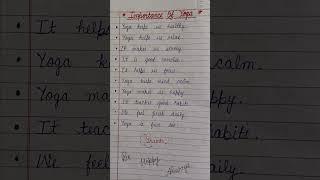 Importance Of Yoga
Yoga helps us healthy.
Yoga helps us relax.
It makes us strong.
It is good exercise.
It helps us focus.
Yoga keeps mind calm.
Yoga makes us happy.
It teaches good habits.
We feel fresh daily.
Yoga is fun too.
Thanks
Be
Happy
Always
It helps
Yoga
calm.
Yoga ma
ppy.
It teac
habits.
We feel
daily.